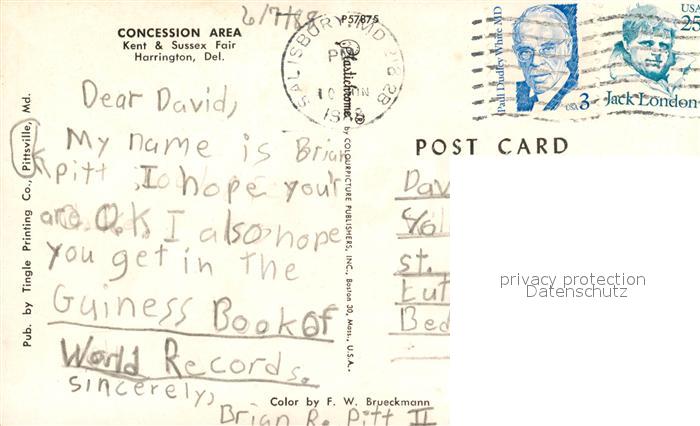 6/7/88
P57875
CONCESSION AREA
Kent & Sussex Fair
Harrington, Del.
Dear David,
My name is Brian
pitt, I hope you'r
are O.K. I also hope
you get in the
Guiness Book of
World Records.
sincerely,
Brian R. Pitt II
Pub. by Tingle Printing Co., Pittsville, Md.
Color by F. W. Brueckmann
Plastichrome® by COLOURPICTURE PUBLISHERS, INC., Boston 30, Mass., U.S.A.
SALISBURY, MD 218
PM
10
Paul Dudley White MD
USA 3
USA
25
Jack London
POST CARD
Dav
st.
Bed
privacy protection
Datenschutz